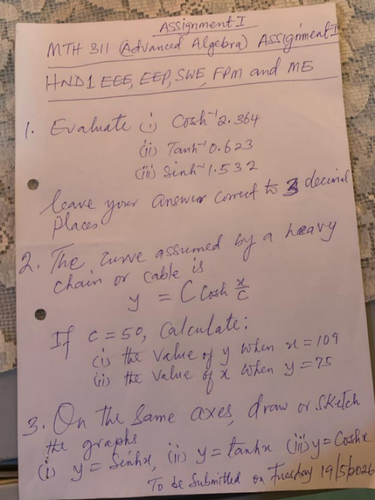 Assignment I
MTH 311 (Advanced Algebra) Assignment I
HND1 EEE, EEP, SWE, FPM and ME
1. Evaluate (i) Cosh⁻¹2.364
(ii) Tanh⁻¹0.623
(iii) Sinh⁻¹1.532
leave your answer correct to 3 decimal
places
2. The curve assumed by a heavy
chain or cable is
y = C Cosh x/c
If c = 50, Calculate:
(i) the value of y when x = 109
(ii) the value of x when y = 75
3. On the same axes, draw or sketch
the graphs
(i) y = Sinhx, (ii) y = tanhx (iii) y = Coshx
To be Submitted on Tuesday 19/5/2026